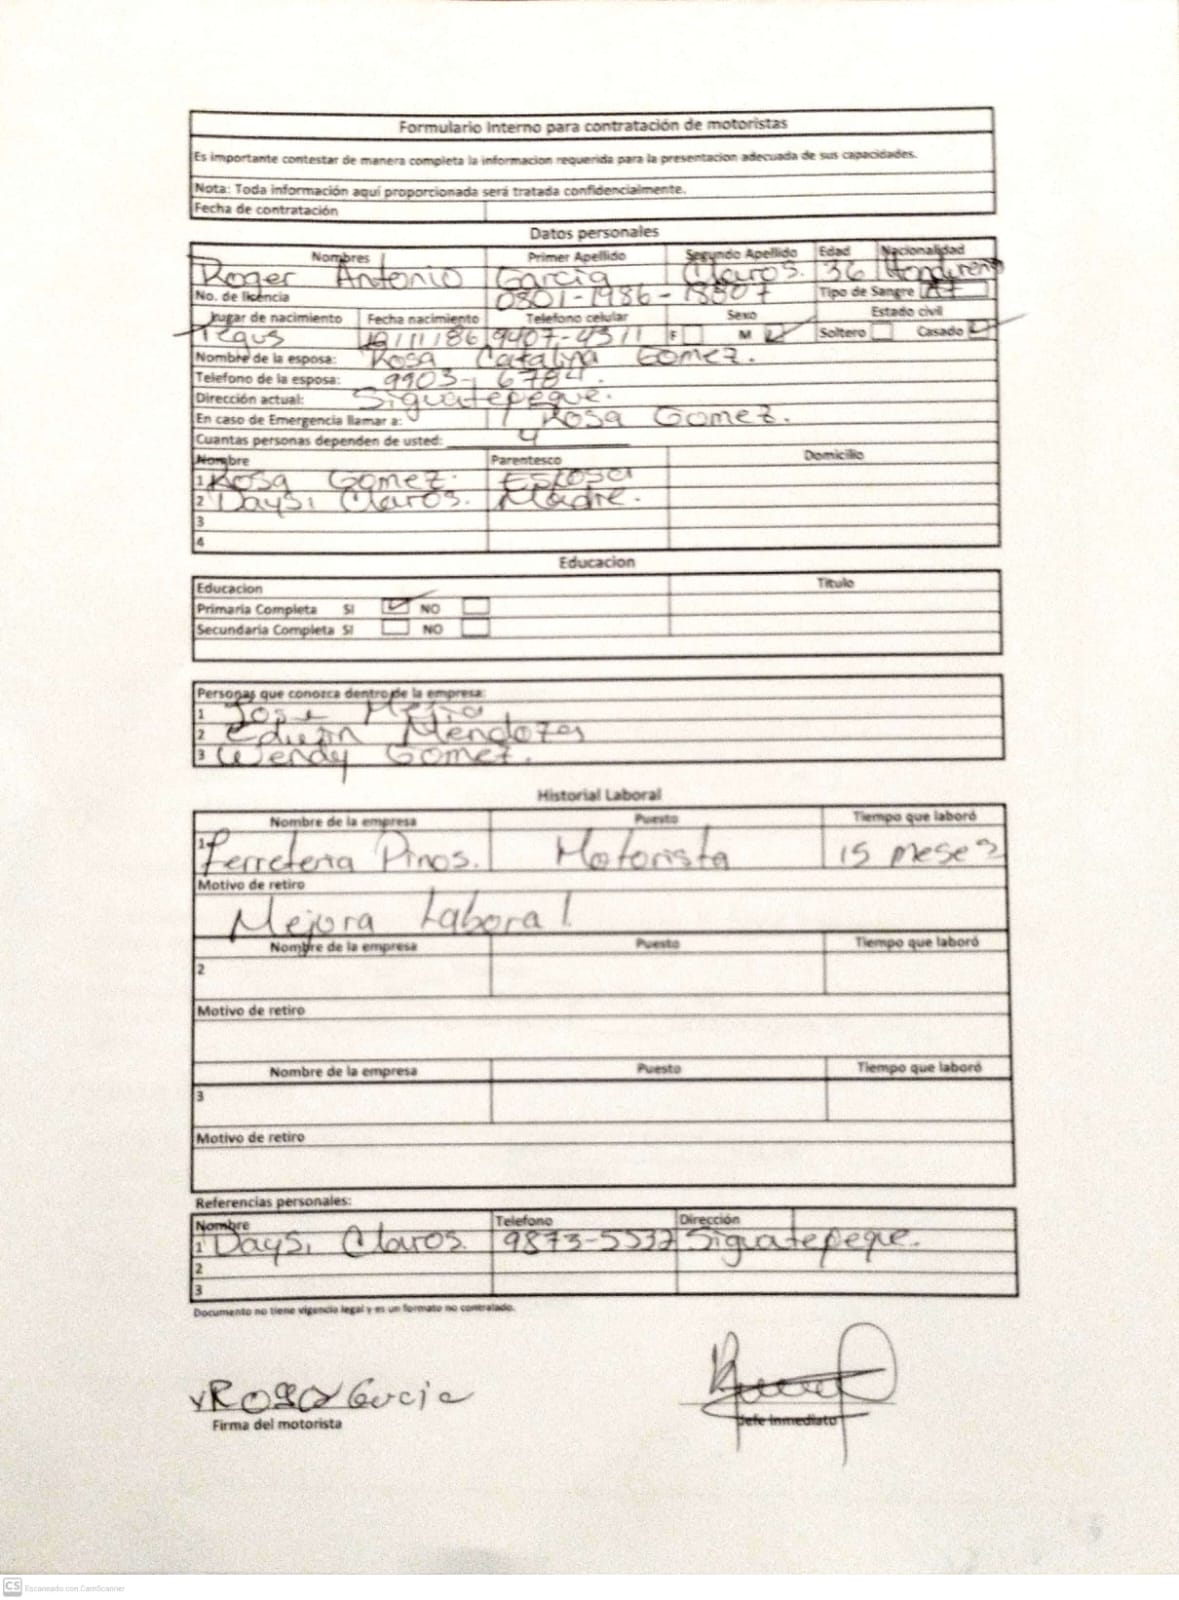 Formulario Interno para contratación de motoristas
Es importante contestar de manera completa la informacion requerida para la presentacion adecuada de sus capacidades.
Nota: Toda información aquí proporcionada será tratada confidencialmente.
Fecha de contratación
Datos personales
Nombres Primer Apellido Segundo Apellido Edad Nacionalidad
Roger Antonio Garcia Claros. 36
No. de licencia 0801-1986- Tipo de Sangre
Lugar de nacimiento Fecha nacimiento Telefono celular Sexo Estado civil
Tegus /11/86 9407-4311 F M Soltero Casado
Nombre de la esposa: Rosa Catalina Gomez.
Telefono de la esposa: 9903-6784.
Dirección actual: Siguatepeque.
En caso de Emergencia llamar a: Rosa Gomez.
Cuantas personas dependen de usted: 4
Nombre Parentesco Domicilio
1 Rosa Gomez. Esposa
2 Daysi Claros. Madre.
3
4
Educacion
Educacion Titulo
Primaria Completa SI NO
Secundaria Completa SI NO
Personas que conozca dentro de la empresa:
1 Jose Mejia
2 Mendoza
3 Wendy Gomez.
Historial Laboral
Nombre de la empresa Puesto Tiempo que laboró
1 Ferreteria Pinos. Motorista 15 meses
Motivo de retiro
Mejora Laboral.
Nombre de la empresa Puesto Tiempo que laboró
2
Motivo de retiro
Nombre de la empresa Puesto Tiempo que laboró
3
Motivo de retiro
Referencias personales:
Nombre Telefono Dirección
1 Daysi Claros. 9873-5532 Siguatepeque.
2
3
Documento no tiene vigencia legal y es un formato no contralado.
Firma del motorista Jefe Inmediato
CS Escaneado con CamScanner